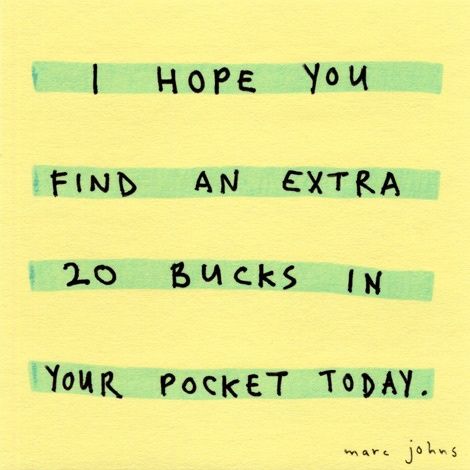 I HOPE YOU
FIND AN EXTRA
20 BUCKS IN
YOUR POCKET TODAY.
marc johns